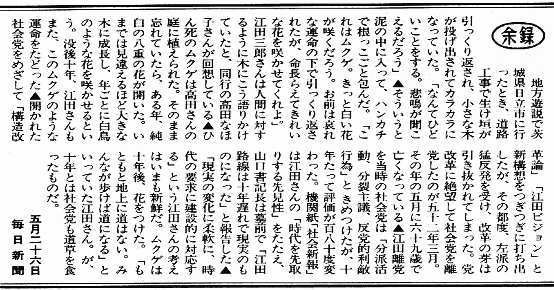 余録
地方遊説で茨
城県日立市に行
ったとき、道路
工事で生け垣が
引っくり返され、小さな木
が投げ出されてカラカラに
なっていた。「なんてひど
いことをする。悲鳴が聞こ
えるだろう」▲そういうと
泥の中に入って、ハンカチ
で根っこごと包んだ。「こ
れはムクゲ。きっと白い花
が咲くだろう。お前は哀れ
な運命の下で引っくり返さ
れたが、命長らえてきれい
な花を咲かせてくれよ」
江田三郎さんは人間に対す
るように木にこう語りかけ
ていたと、同行の高田なほ
子さんが回想している▲ひ
ん死のムクゲは高田さんの
庭に植えられた。そのまま
忘れていたら、ある年、純
白の八重の花が開いた。い
までは見違えるほど大きな
木に成長し、年ごとに白鳥
のような花を咲かせるとい
う。没後十年、江田さんも
また、このムクゲのような
運命をたどった▲開かれた
社会党をめざして「構造改
革論」「江田ビジョン」と
新構想をつぎつぎに打ち出
したが、その都度、左派の
猛反発を受け、改革の芽は
引き抜かれてしまった。党
改革に絶望して社会党を離
党したのが五十二年三月。
その年の五月に六十九歳で
亡くなっている▲江田離党
を当時の社会党は「分派活
動、分裂主義、反党的利敵
行為」ときめつけたが、十
年たって評価が百八十度変
わった。機関紙「社会新報」
は江田さんの「時代を先取
りする先見性」をたたえ、
山口書記長は墓前で「江田
路線は十年遅れで現実のも
のになった」と報告した▲
「現実の変化に柔軟に、時
代の要求に建設的に対応す
る」という江田さんの考え
はいまも新鮮だ。ムクゲは
十年後、花をつけた。「も
ともと地上に道はない。み
んなが歩けば道になる」と
いっていた江田さん。が、
十年とは社会党も道草を食
ったものだ。
五月二十六日
毎日新聞